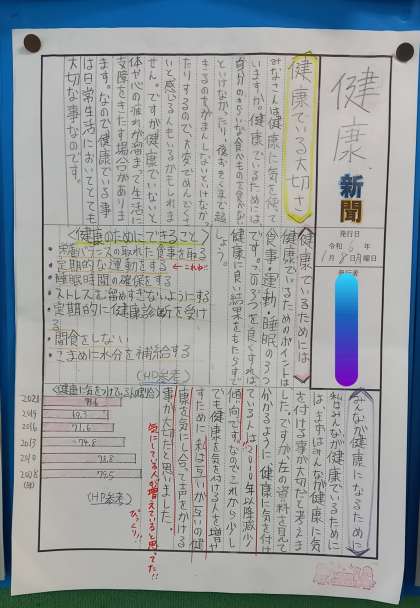 健康
新聞
発行日
令和6年
1月8日月曜日
発行者
健康でいる大切さ
みなさんは健康に気を使って
いますか。健康でいるためには、
自分のきらいな食べものを食べない
といけなかったり、夜おそくまで起
きるのをがまんしないといけなかっ
たりするので、大変でめんどくさ
いと感じる人もいるかもしれま
せん。ですが健康でいないと
体や心の疲れが溜まって生活に
支障をきたす場合があり
ます。なので健康でいる事
は日常生活においてとても
大切な事なのです。
健康でいるためには
健康でいるためのポイントは
食事・運動・睡眠の3つ
です。この3つを良くすれば
健康に良い結果をもたらすで
しょう。
<健康のためにできること>
・栄養バランスの取れた食事を取る
・定期的な運動をする
・睡眠時間の確保をする
・ストレスを留めすぎないようにする
・定期的に健康診断を受ける
・間食をしない
・こまめに水分を補給する
(HP参考)
みんなが健康になるために
私はみんなが健康でいるために
はまずはみんなが健康に気
を付ける事が大切だと考えま
した。ですが左の資料を見て
分かるように健康に気を付け
ている人は2019年以降減少
傾向です。なのでこれから少し
でも健康に気を付ける人を増や
すために私は互いが互いの健
康を気にし合って声をかける
事が大切だと思いました。
気にしている人が増えていると思ってた!!
びっくり!!
<健康に気をつけている人の割合>
(HP参考)